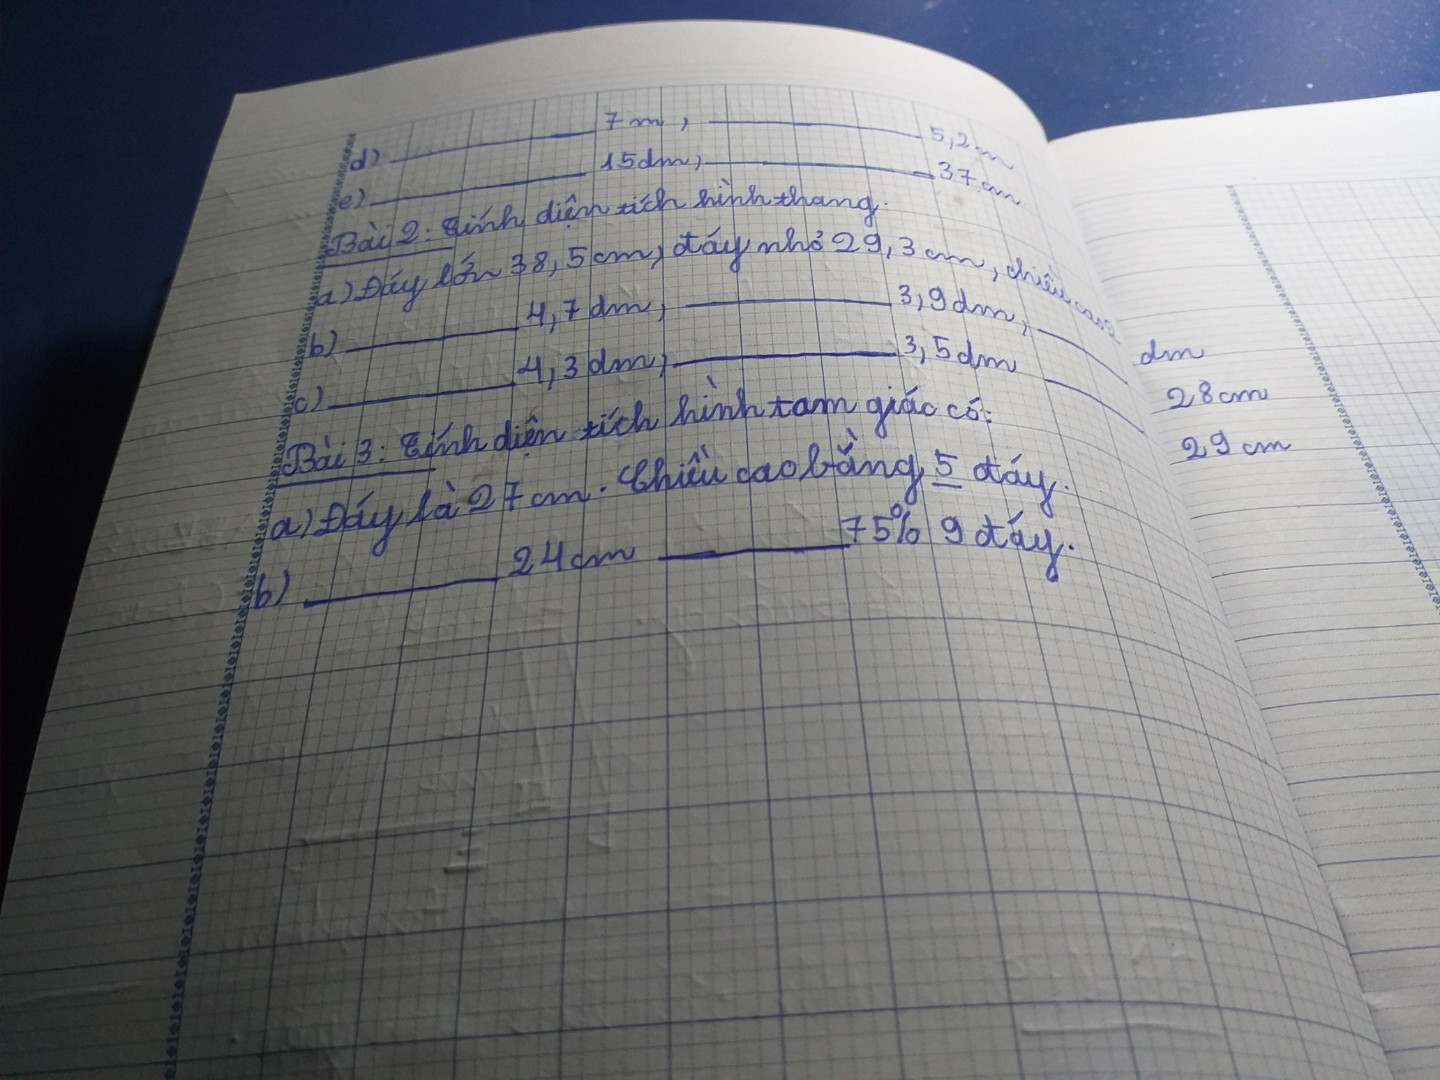 d) ________ 7m, ________ 5,2m
e) ________ 15dm, ________ 37cm
Bài 2: Tính diện tích hình thang.
a) Đáy lớn 38,5cm, đáy nhỏ 29,3cm, chiều cao 2 dm
b) ________ 4,7dm, ________ 3,9dm, ________ 28cm
c) ________ 4,3dm, ________ 3,5dm ________ 29cm
Bài 3: Tính diện tích hình tam giác có:
a) Đáy là 27cm. Chiều cao bằng 5/9 đáy.
b) ________ 24cm ________ 75% đáy.